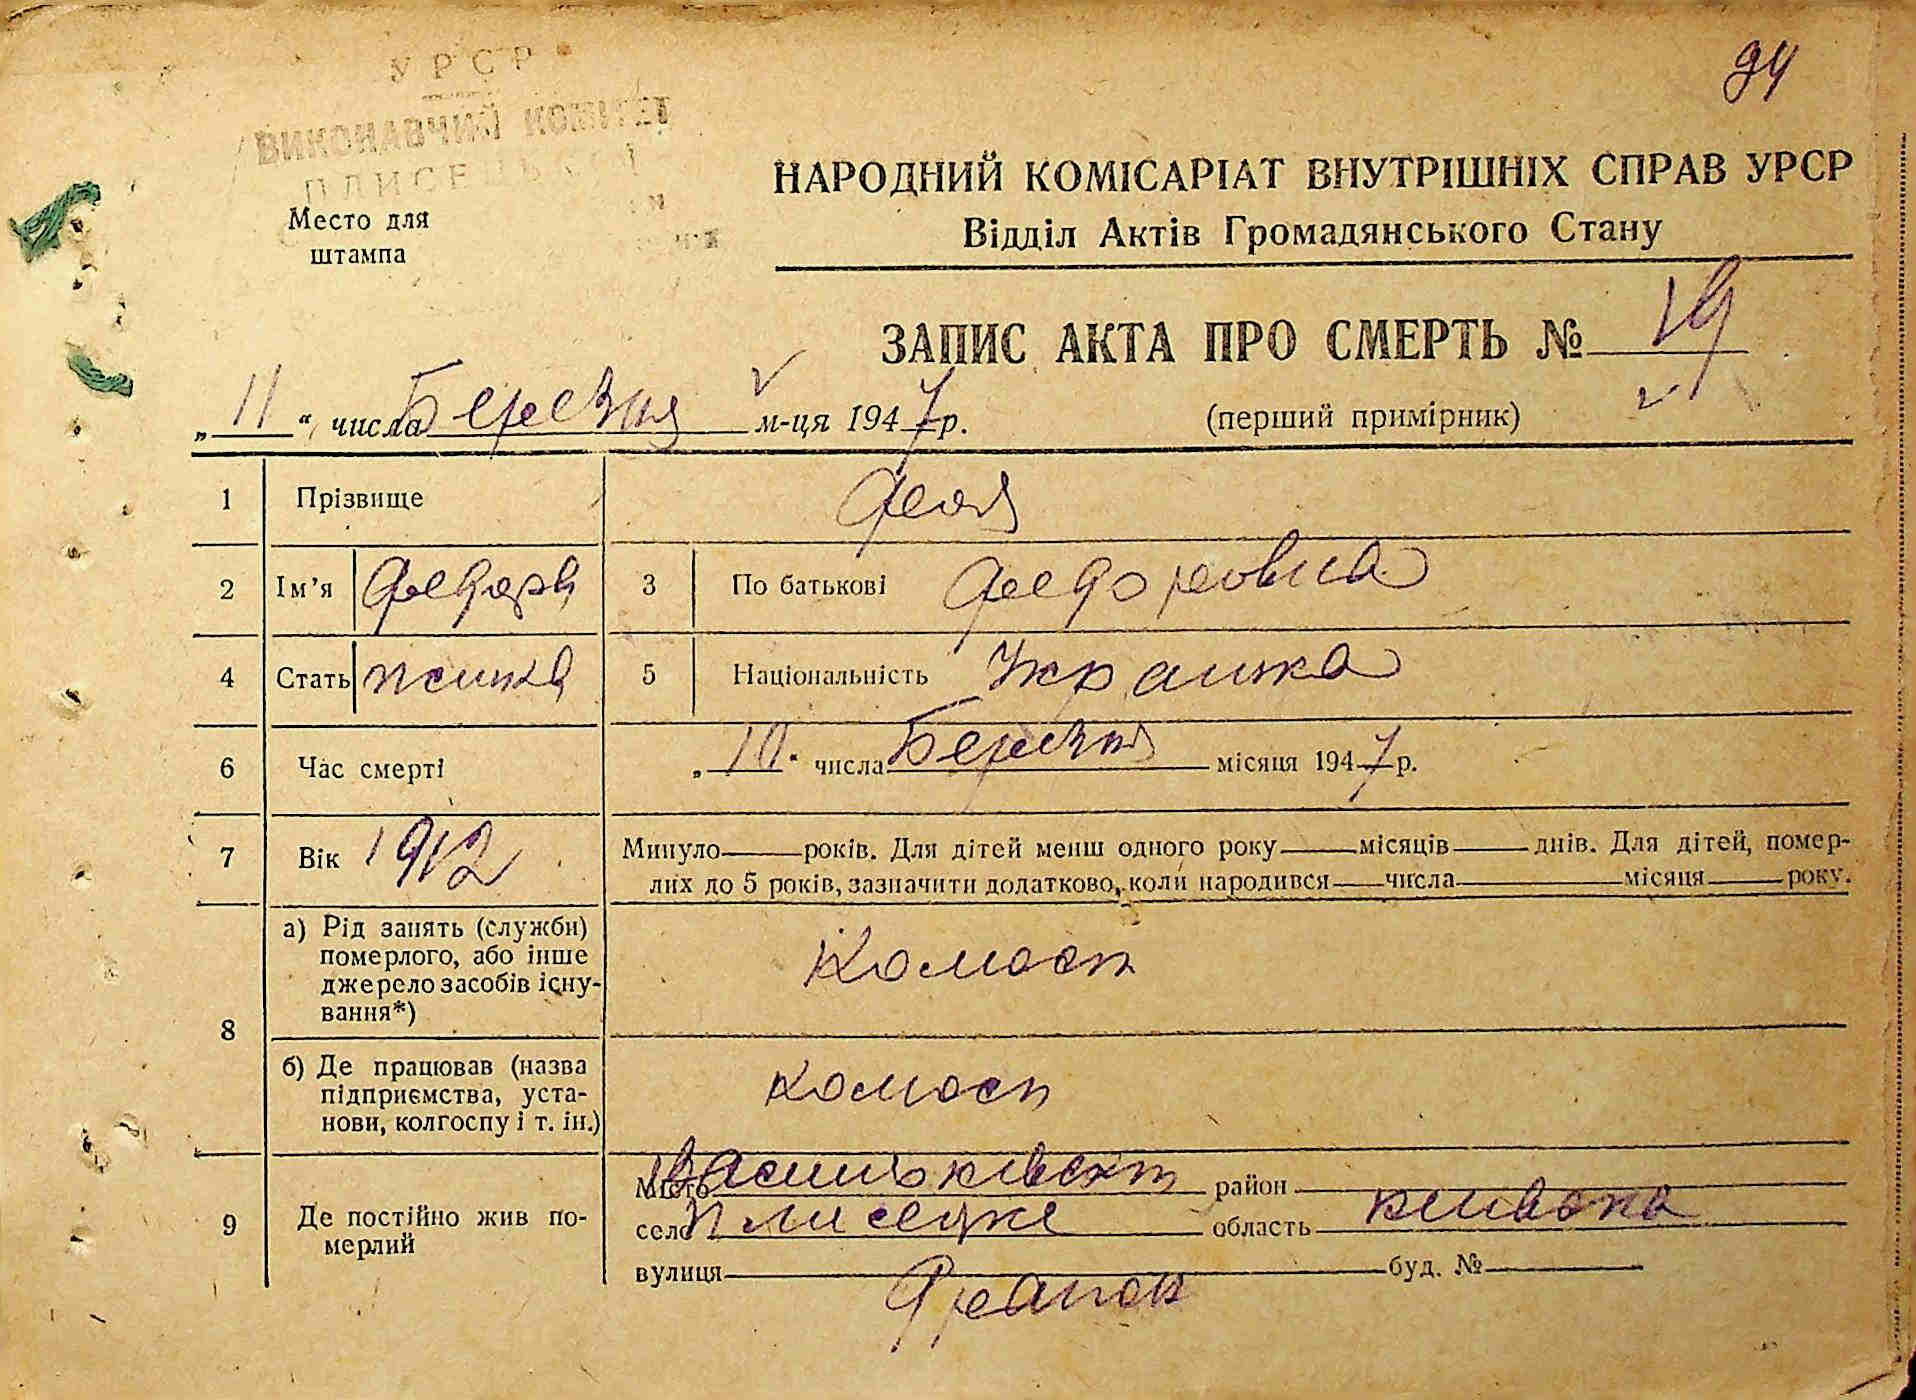 УРСР
94
ВИКОНАВЧИЙ КОМІТЕТ
НАРОДНИЙ КОМІСАРІАТ ВНУТРІШНІХ СПРАВ УРСР
Место для
штампа
Відділ Актів Громадянського Стану
ЗАПИС АКТА ПРО СМЕРТЬ № 19
„ 11 “ числа Березня м-ця 1947 р.
(перший примірник)
1 Прізвище
2 Ім'я Федора 3 По батькові Федоровна
4 Стать жінка 5 Національність Украінка
6 Час смерті „ 10 “ числа Березня місяця 1947 р.
7 Вік 1912 Минуло      років. Для дітей менш одного року      місяців      днів. Для дітей, помер-
лих до 5 років, зазначити додатково, коли народився      числа      місяця      року.
8 а) Рід занять (служби)
померлого, або інше
джерело засобів існу-
вання*)
б) Де працював (назва
підприємства, уста-
нови, колгоспу і т. ін.)
9 Де постійно жив по-
мерлий
місто Васильківськ район
село Плисецке область Київська
вулиця      буд. №